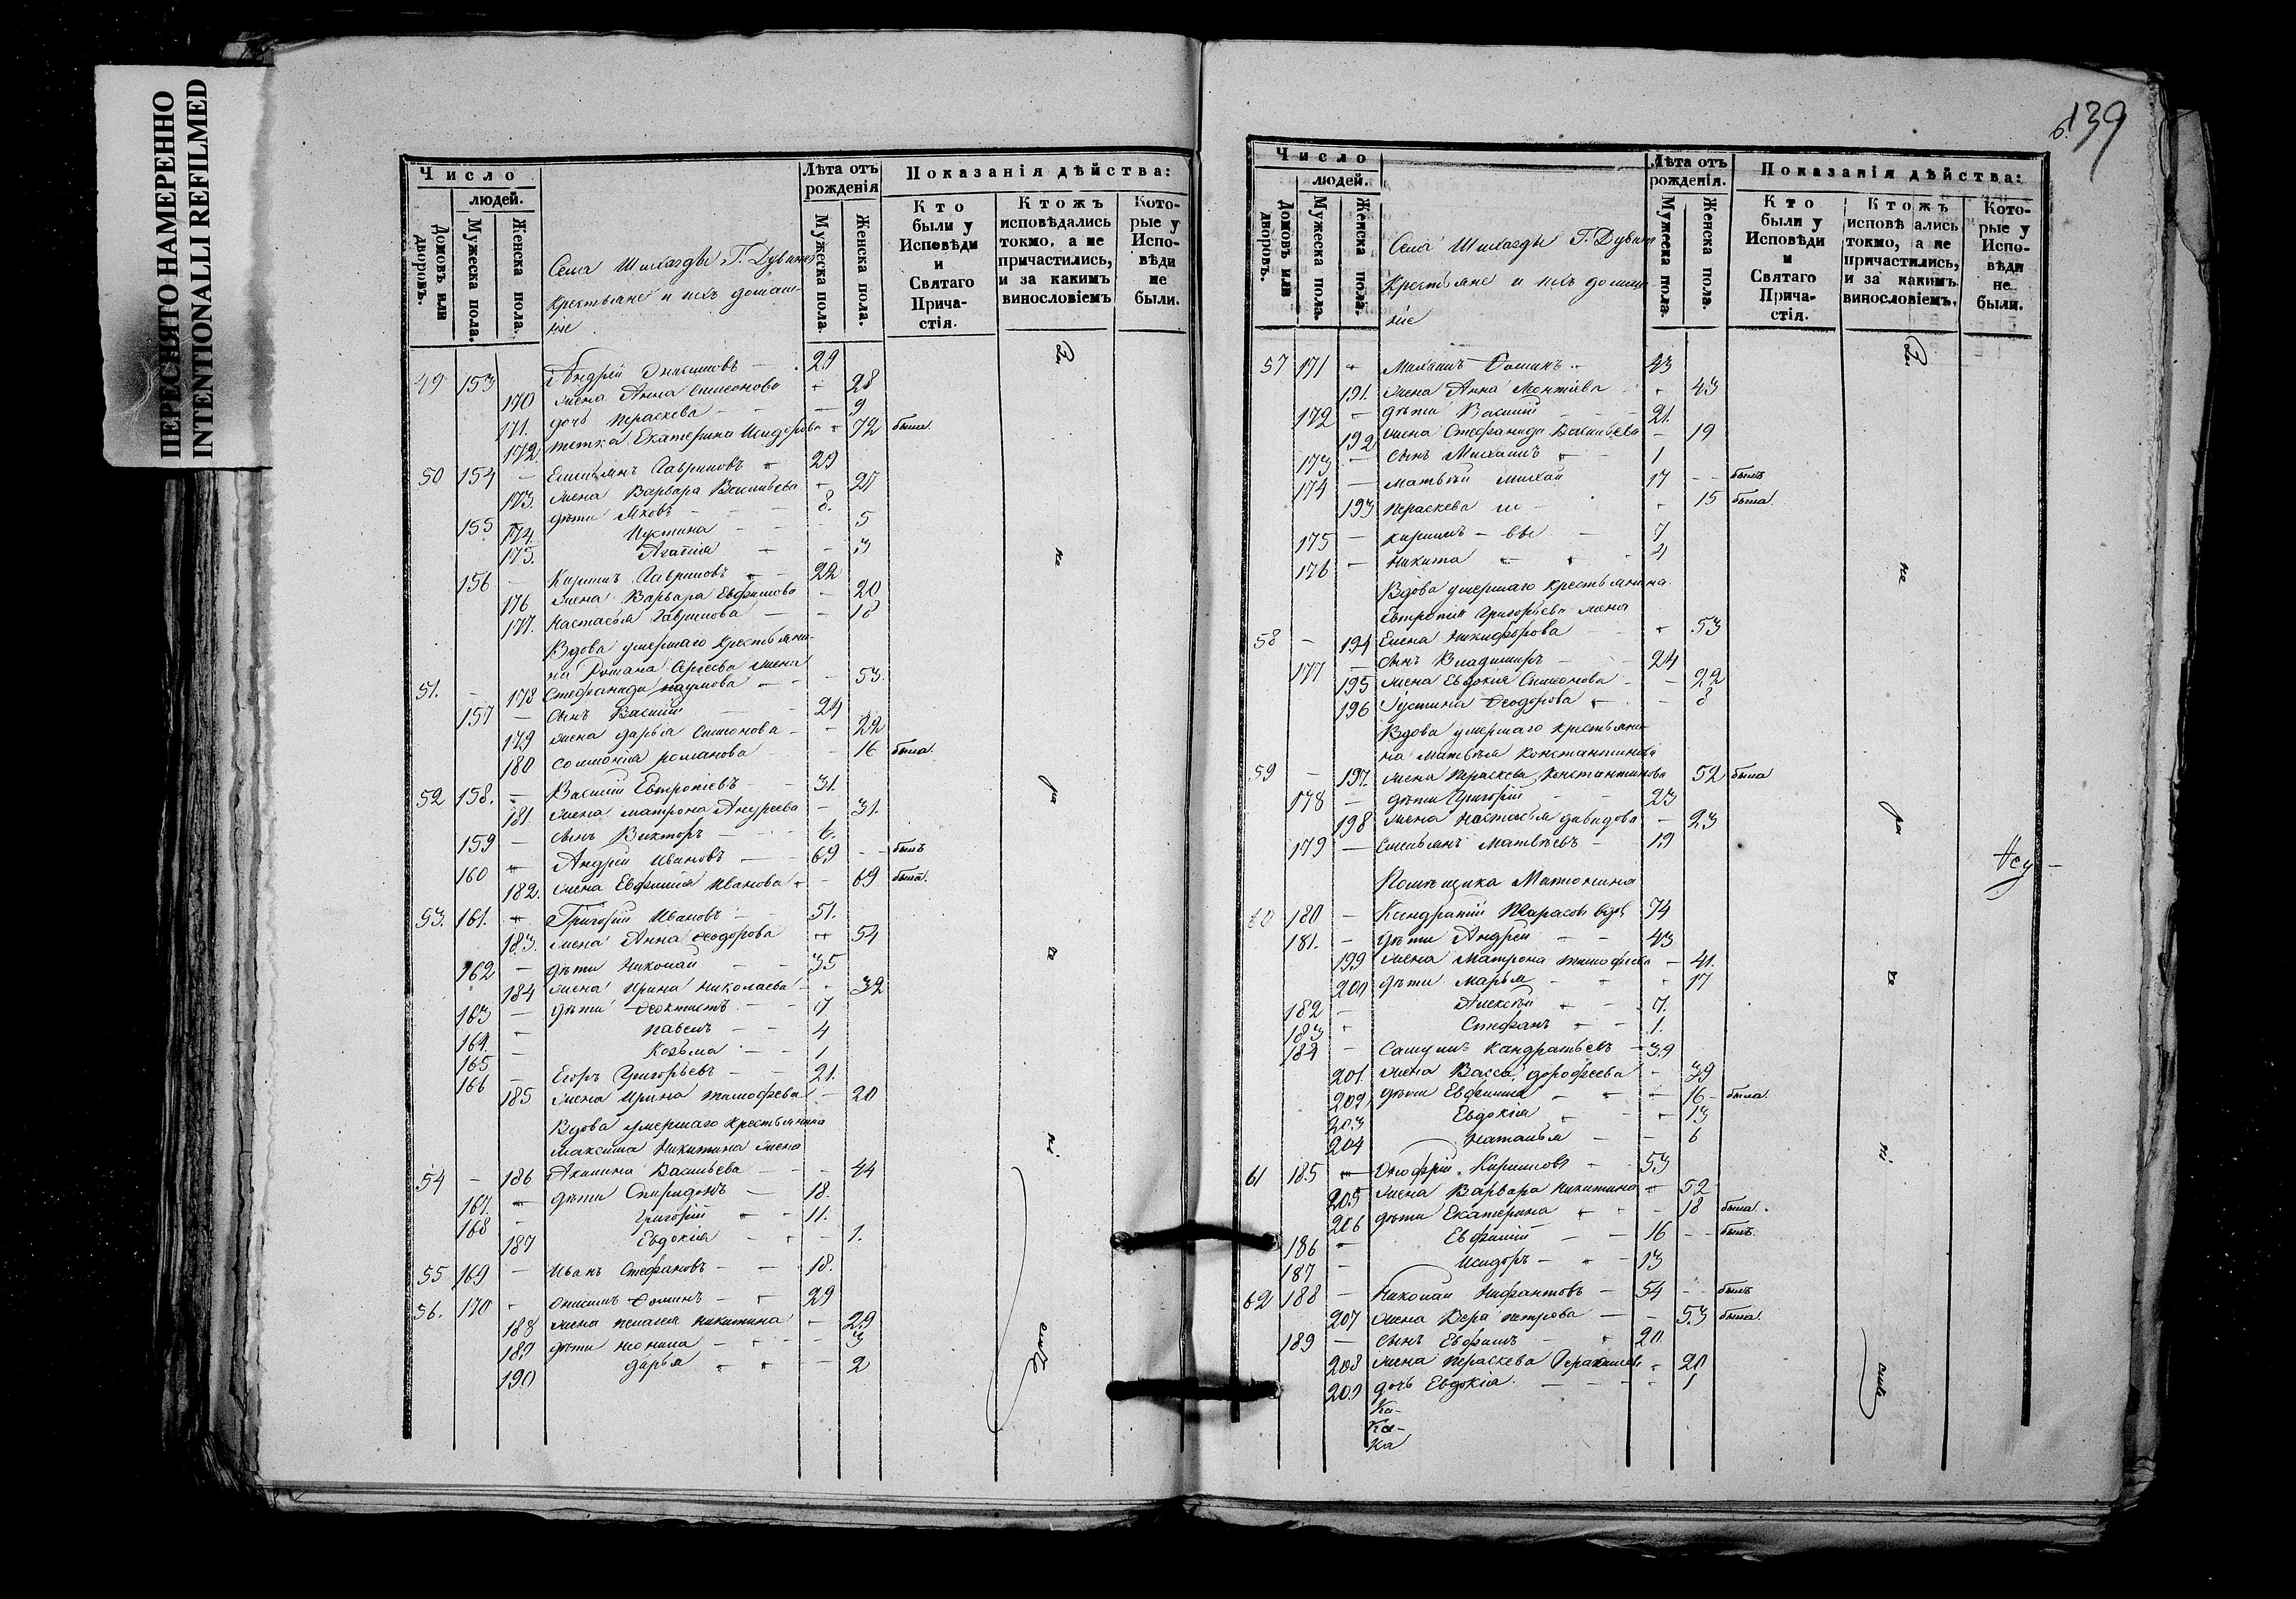 ПЕРЕСНЯТО НАМЕРЕННО
INTENTIONALLI REFILMED
Число
людей.
Домовъ или дворовъ.
Мужеска пола.
Женска пола.
Села Г.
крестьяне и ихъ домаш-
ніе
Лѣта отъ рожденія
Мужеска пола.
Женска пола.
Показанія дѣйства:
Кто были у Исповѣди и Святаго Прича-стія.
Ктожъ исповѣдались токмо, а не причастились, и за какимъ винословіемъ
Кото-рые у Испо-вѣди не были.
49 153 Андрей 29
170 жена Анна Симонова 28
171. дочь Пераскева 9
172 тетка Екатерина Исидорова 72 была.
50 154 Емельянъ Гавриловъ 29
173. жена Варвара Васильева 27
155 дѣти Яковъ 8.
174. Иустина 5
175. Агапія 3
156 Кирилъ Гавриловъ 22
176 жена Варвара Евфимова 20
177. Настасья Гаврилова 18
Вдова умершаго крестьяни-
на Романа жена
51. 178 Стефанида Наумова 53.
157 сынъ Василій 24
179 жена Дарья Симонова 22
180 Соломонія Романова 16 была.
52 158. Василій Евтропіевъ 31.
181. жена Матрона Андреева 31.
159 сынъ Викторъ 6.
160 Андрей Ивановъ 69 былъ
182. жена Евфимія Иванова 69 была.
53. 161. Григорій Ивановъ 51.
183. жена Анна Ѳеодорова 54
162 дѣти Николай 35
184 жена Ирина Николаева 32
163 дѣти Ѳеоктистъ 7
164. Павелъ 4
165 Козьма 1
166 Егоръ Григорьевъ 21.
185 жена Ирина Тимофеева 20
Вдова умершаго крестьянина
Максима Никитина жена
54 186 Акилина Васильева 44
167. дѣти Спиридонъ 18.
168 Григорій 11.
187 Евдокія 1.
55 169 Иванъ Стефановъ 18.
56. 170 Онисимъ Ѳоминъ 29
188 жена Пелагея Никитина 29
189 дѣти Неонила 3
190 Дарья 2
За не ра де ні емъ
139
Число
людей.
Домовъ или дворовъ.
Мужеска пола.
Женска пола.
Села Г.
Крестьяне и ихъ домаш-
ніе
Лѣта отъ рожденія.
Мужеска пола.
Женска пола.
Показанія дѣйства:
Кто были у Исповѣди и Святаго Прича-стія.
Ктожъ исповѣ ались токмо, а не причастились, и за какимъ винословіемъ.
Кото-рые у Испо-вѣди не были.
57 171 Михаилъ Ѳоминъ 43
191. жена Анна Леонтіева 43
172 дѣти Василій 21.
192 жена Стефанида Васильева 19
173 сынъ Михаилъ 1
174 Матвѣй Михай 17 былъ
193 Пераскева ло 15 была.
175 Кирилъ вы 7
176 Никита 4
Вдова умершаго крестьянина
Евтропія Григорьева жена
58 194 Елена Никифорова 53
177 сынъ Владимиръ 24
195 жена Евдокія Симонова 22
196 Іустина Ѳеодорова 8
Вдова умершаго крестьяни-
на Матвѣя Константинова
59 197. жена Пераскева Константинова 52 была
178 дѣти Григорій 23
198 жена Настасья Давидова 23
179 Емельянъ Матвѣевъ 19
Помѣщика Матюнина
60 180 Кандратій Тарасовъ вдов 74
181. дѣти Андрей 43
199 жена Матрона Тимофеева 41.
200 дѣти Марья 17
182 Алексѣй 7.
183 Стефанъ 1.
184 Самуилъ Кандратьевъ 39
201. жена Васса Дорофеева 39
202 дѣти Евфимія 16 была.
203 Евдокія 13
204 Наталья 6
61 185 Онофрій Кириловъ 53
205 жена Варвара Никитина 52
206 дѣти Екатерина 18 была.
186 Евфимій 16 былъ.
187 Исидоръ 13
62 188 Николай Нифантовъ 54 былъ
207 жена Вера Петрова 53 была.
189 сынъ Евфимъ 20.
208 жена Пераскева Герасимова 20
209 дочь Евдокія. 1
Ка-
Ка-
Ка
За не ра де ні емъ